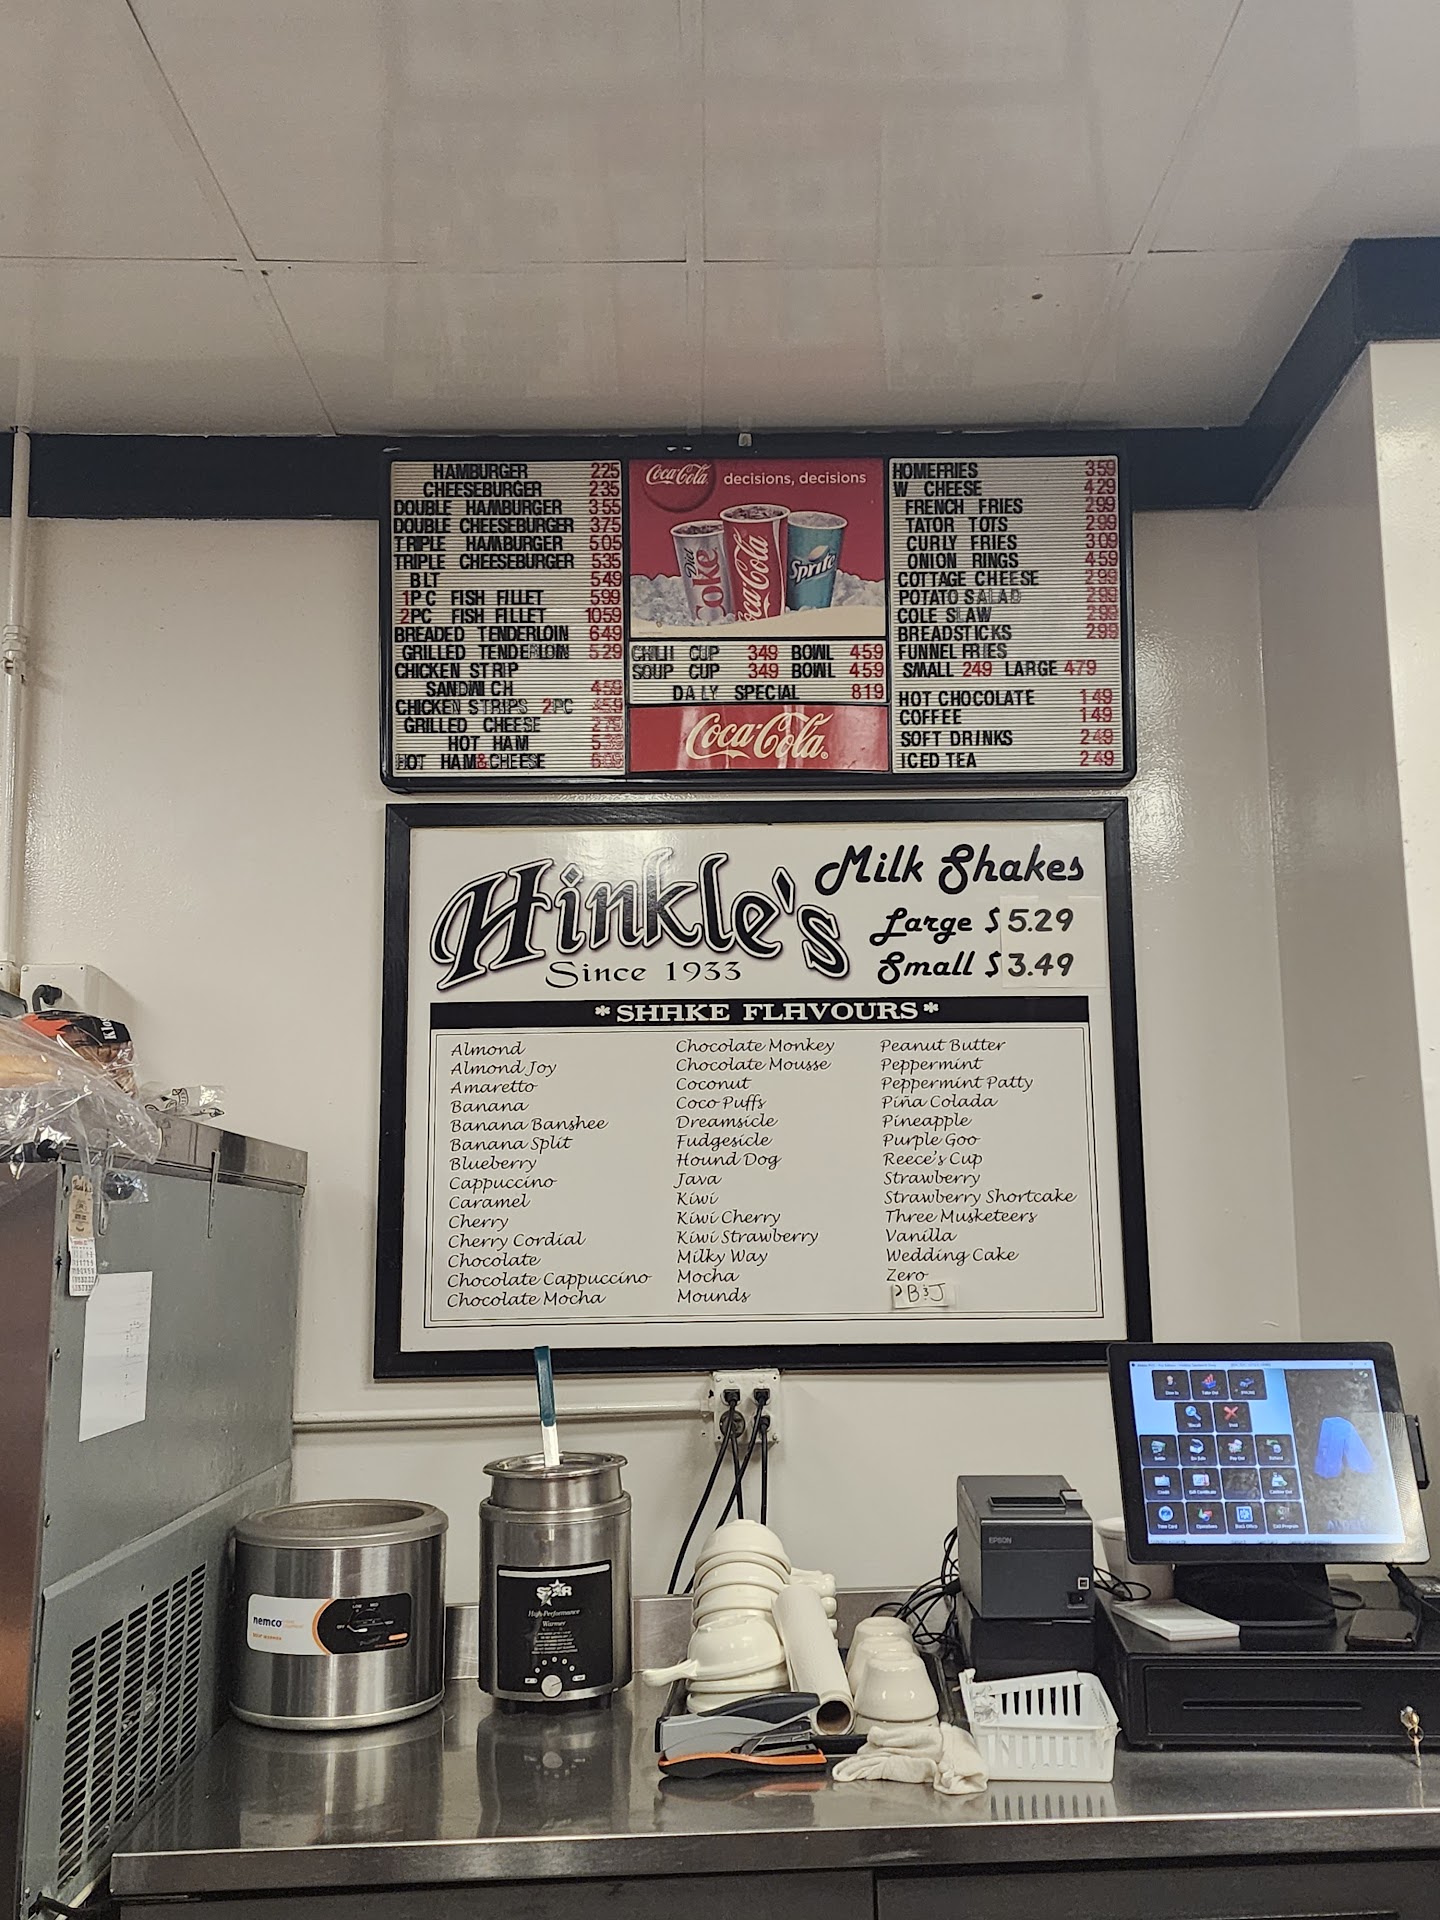 HAMBURGER 225
CHEESEBURGER 235
DOUBLE HAMBURGER 355
DOUBLE CHEESEBURGER 375
TRIPLE HAMBURGER 505
TRIPLE CHEESEBURGER 535
BLT 549
1PC FISH FILLET 599
2PC FISH FILLET 1059
BREADED TENDERLOIN 649
GRILLED TENDERLOIN 529
CHICKEN STRIP
SANDWICH 459
CHICKEN STRIPS 2PC 459
GRILLED CHEESE
HOT HAM
HOT HAM&CHEESE
Coca-Cola decisions, decisions
Diet Coke
Coca-Cola
Sprite
CHILI CUP 349 BOWL 459
SOUP CUP 349 BOWL 459
DAILY SPECIAL 819
Coca-Cola
HOMEFRIES 359
W CHEESE 429
FRENCH FRIES 299
TATOR TOTS 299
CURLY FRIES 309
ONION RINGS 459
COTTAGE CHEESE 299
POTATO SALAD 299
COLE SLAW 299
BREADSTICKS 299
FUNNEL FRIES
SMALL 249 LARGE 479
HOT CHOCOLATE 149
COFFEE 149
SOFT DRINKS 249
ICED TEA 249
Hinkle's
Since 1933
Milk Shakes
Large $5.29
Small $3.49
*SHAKE FLAVOURS*
Almond
Almond Joy
Amaretto
Banana
Banana Banshee
Banana Split
Blueberry
Cappuccino
Caramel
Cherry
Cherry Cordial
Chocolate
Chocolate Cappuccino
Chocolate Mocha
Chocolate Monkey
Chocolate Mousse
Coconut
Coco Puffs
Dreamsicle
Fudgesicle
Hound Dog
Java
Kiwi
Kiwi Cherry
Kiwi Strawberry
Milky Way
Mocha
Mounds
Peanut Butter
Peppermint
Peppermint Patty
Piña Colada
Pineapple
Purple Goo
Reece's Cup
Strawberry
Strawberry Shortcake
Three Musketeers
Vanilla
Wedding Cake
Zero
PB&J
nemco
STAR
High-Performance
Warmer
EPSON